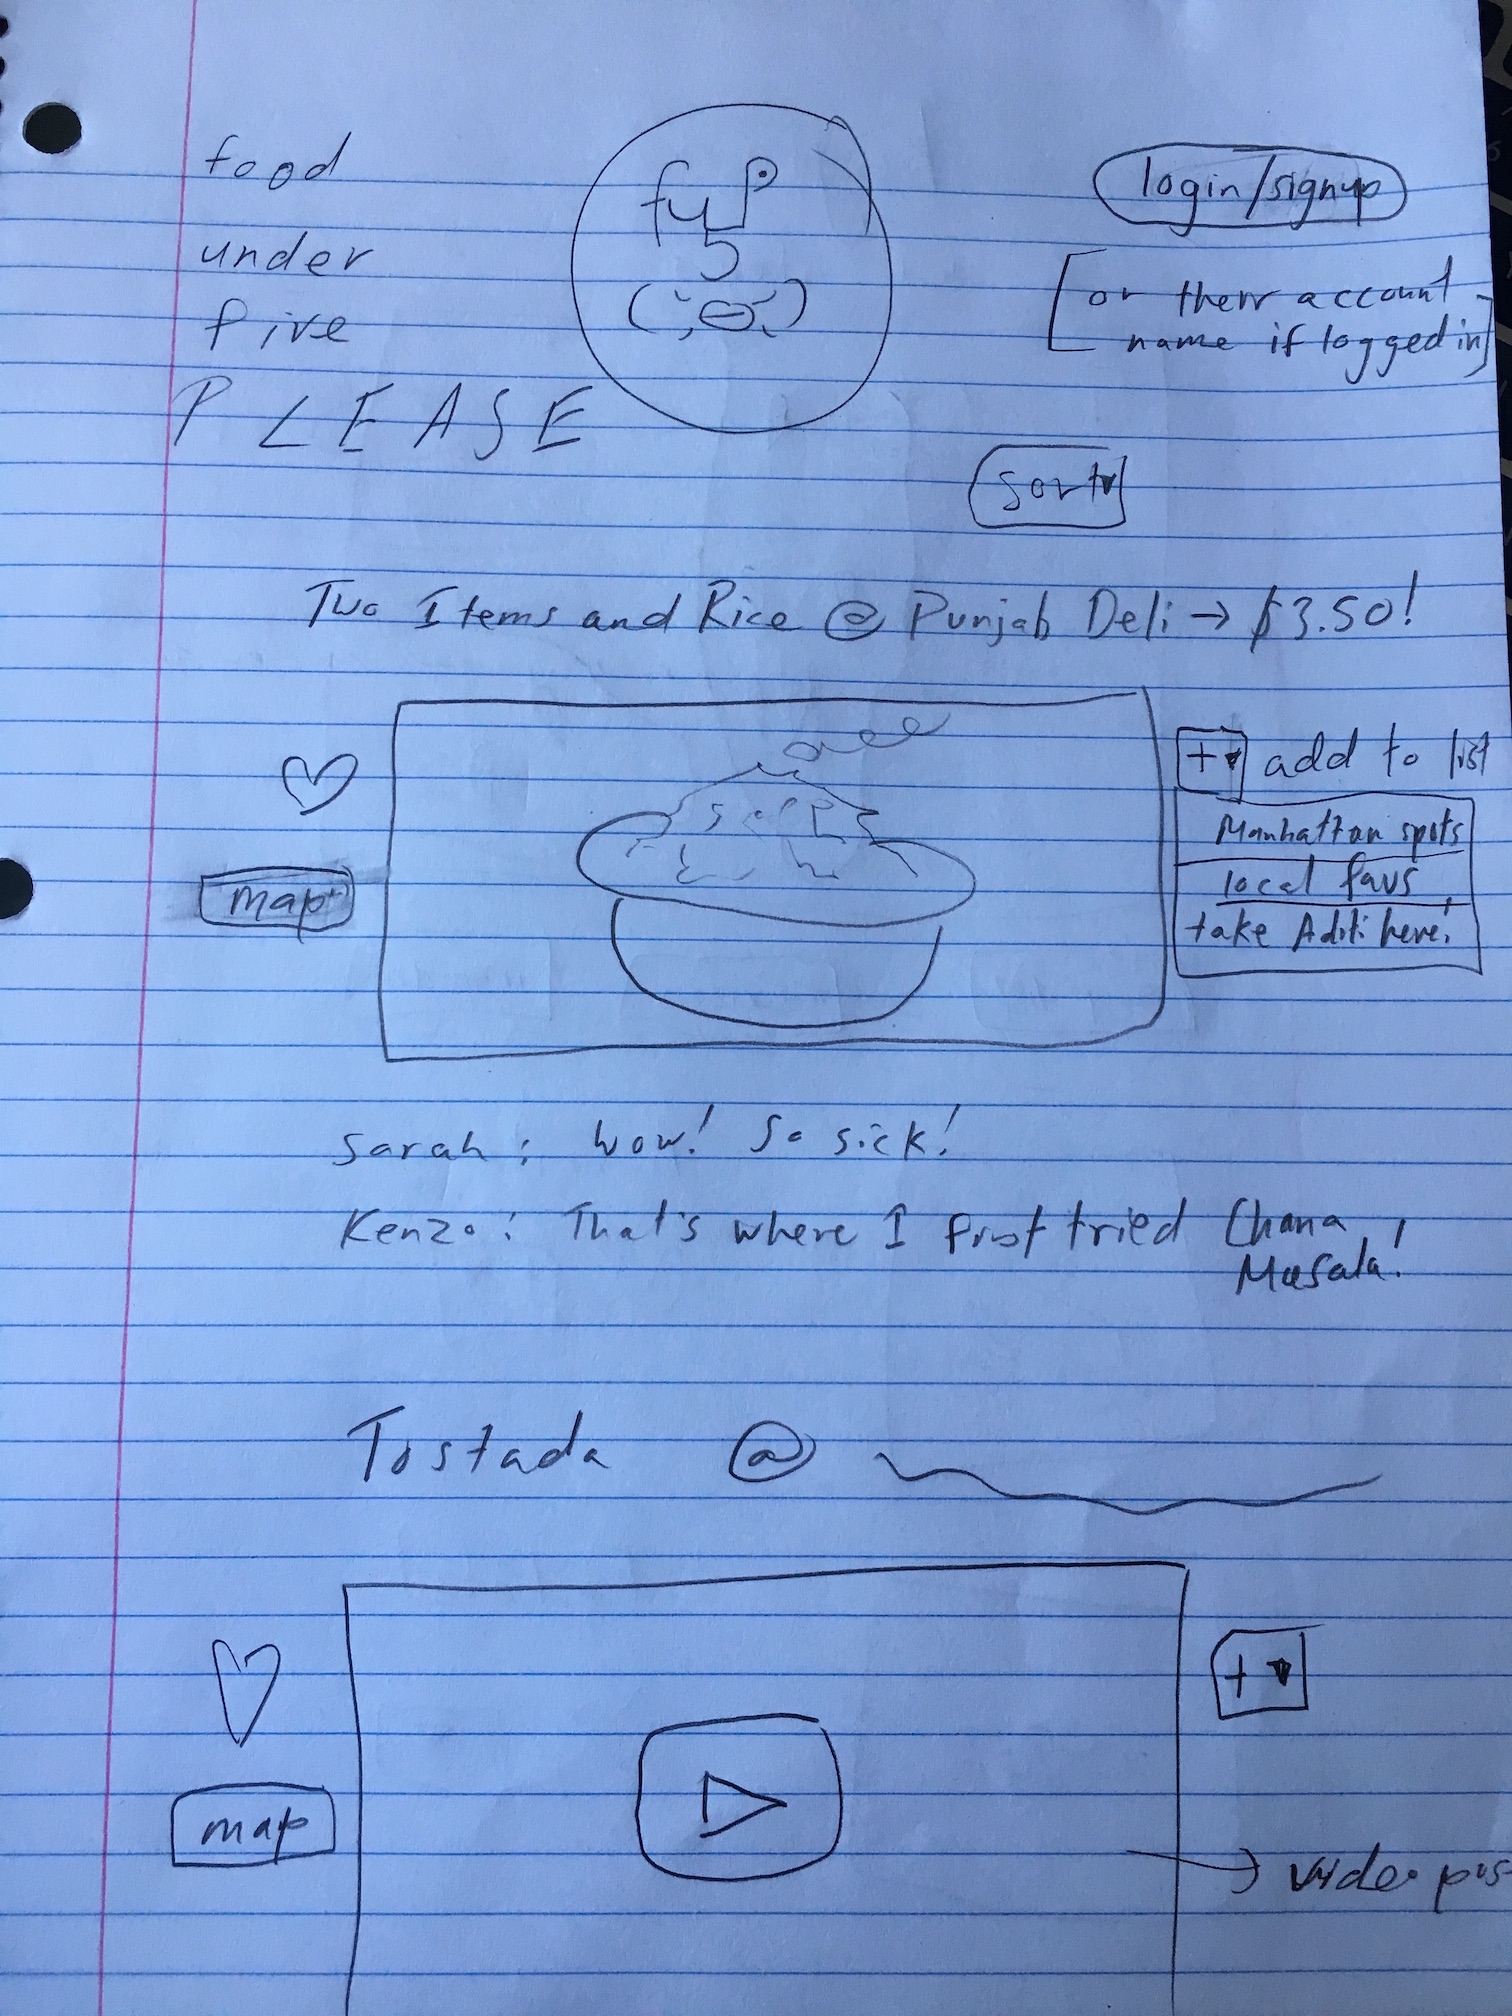 food
under
five
PLEASE
fu5P
login/signup
[or their account
name if logged in]
sort
Two Items and Rice @ Punjab Deli → $3.50!
map
+ add to list
Manhattan spots
local favs
take Aditi here!
Sarah: Wow! So sick!
Kenzo: That's where I first tried Chana
Masala!
Tostada @
+
map
→ video pos